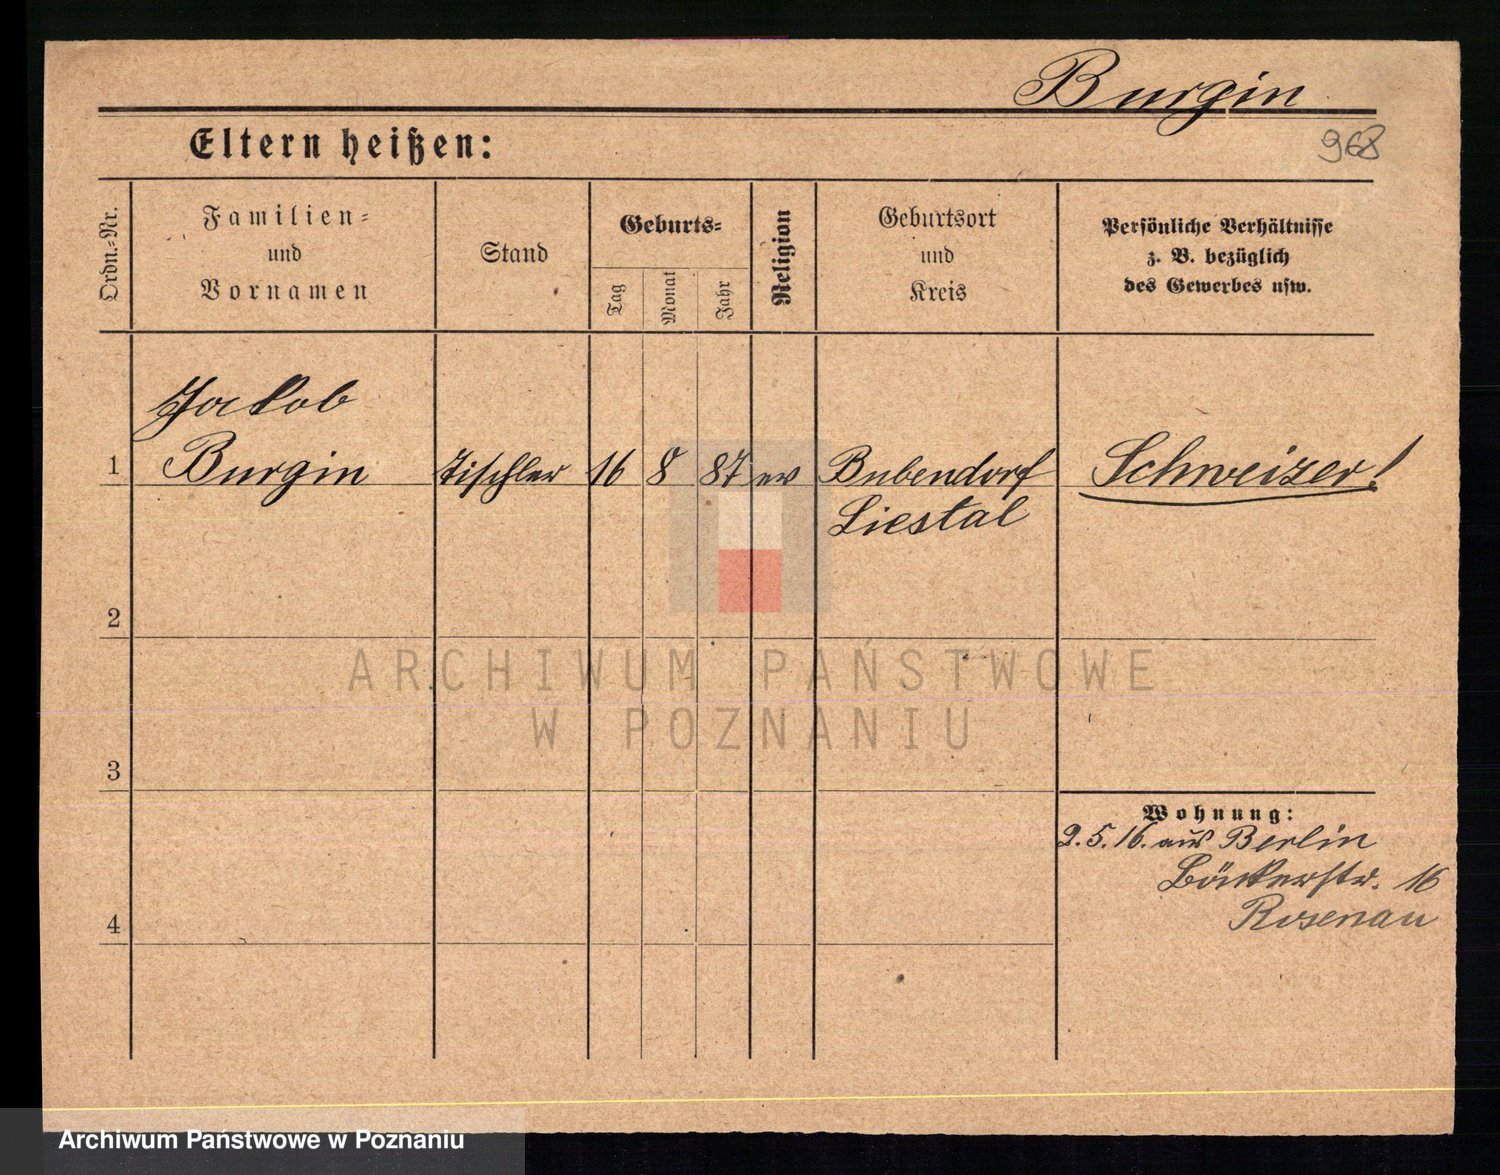 Burgin
968
Eltern heißen:
Ordn.-Nr.
Familien-
und
Vornamen
Stand
Geburts-
Tag
Monat
Jahr
Religion
Geburtsort
und
Kreis
Persönliche Verhältnisse
z. B. bezüglich
des Gewerbes usw.
Jakob
1 Burgin Tischler 16 8 87 ev Bubendorf Schweizer!
Liestal
2
ARCHIWUM PAŃSTWOWE
W POZNANIU
3
Wohnung:
2.5.16. aus Berlin
Bänkerstr. 16
4
Rosenau
Archiwum Państwowe w Poznaniu